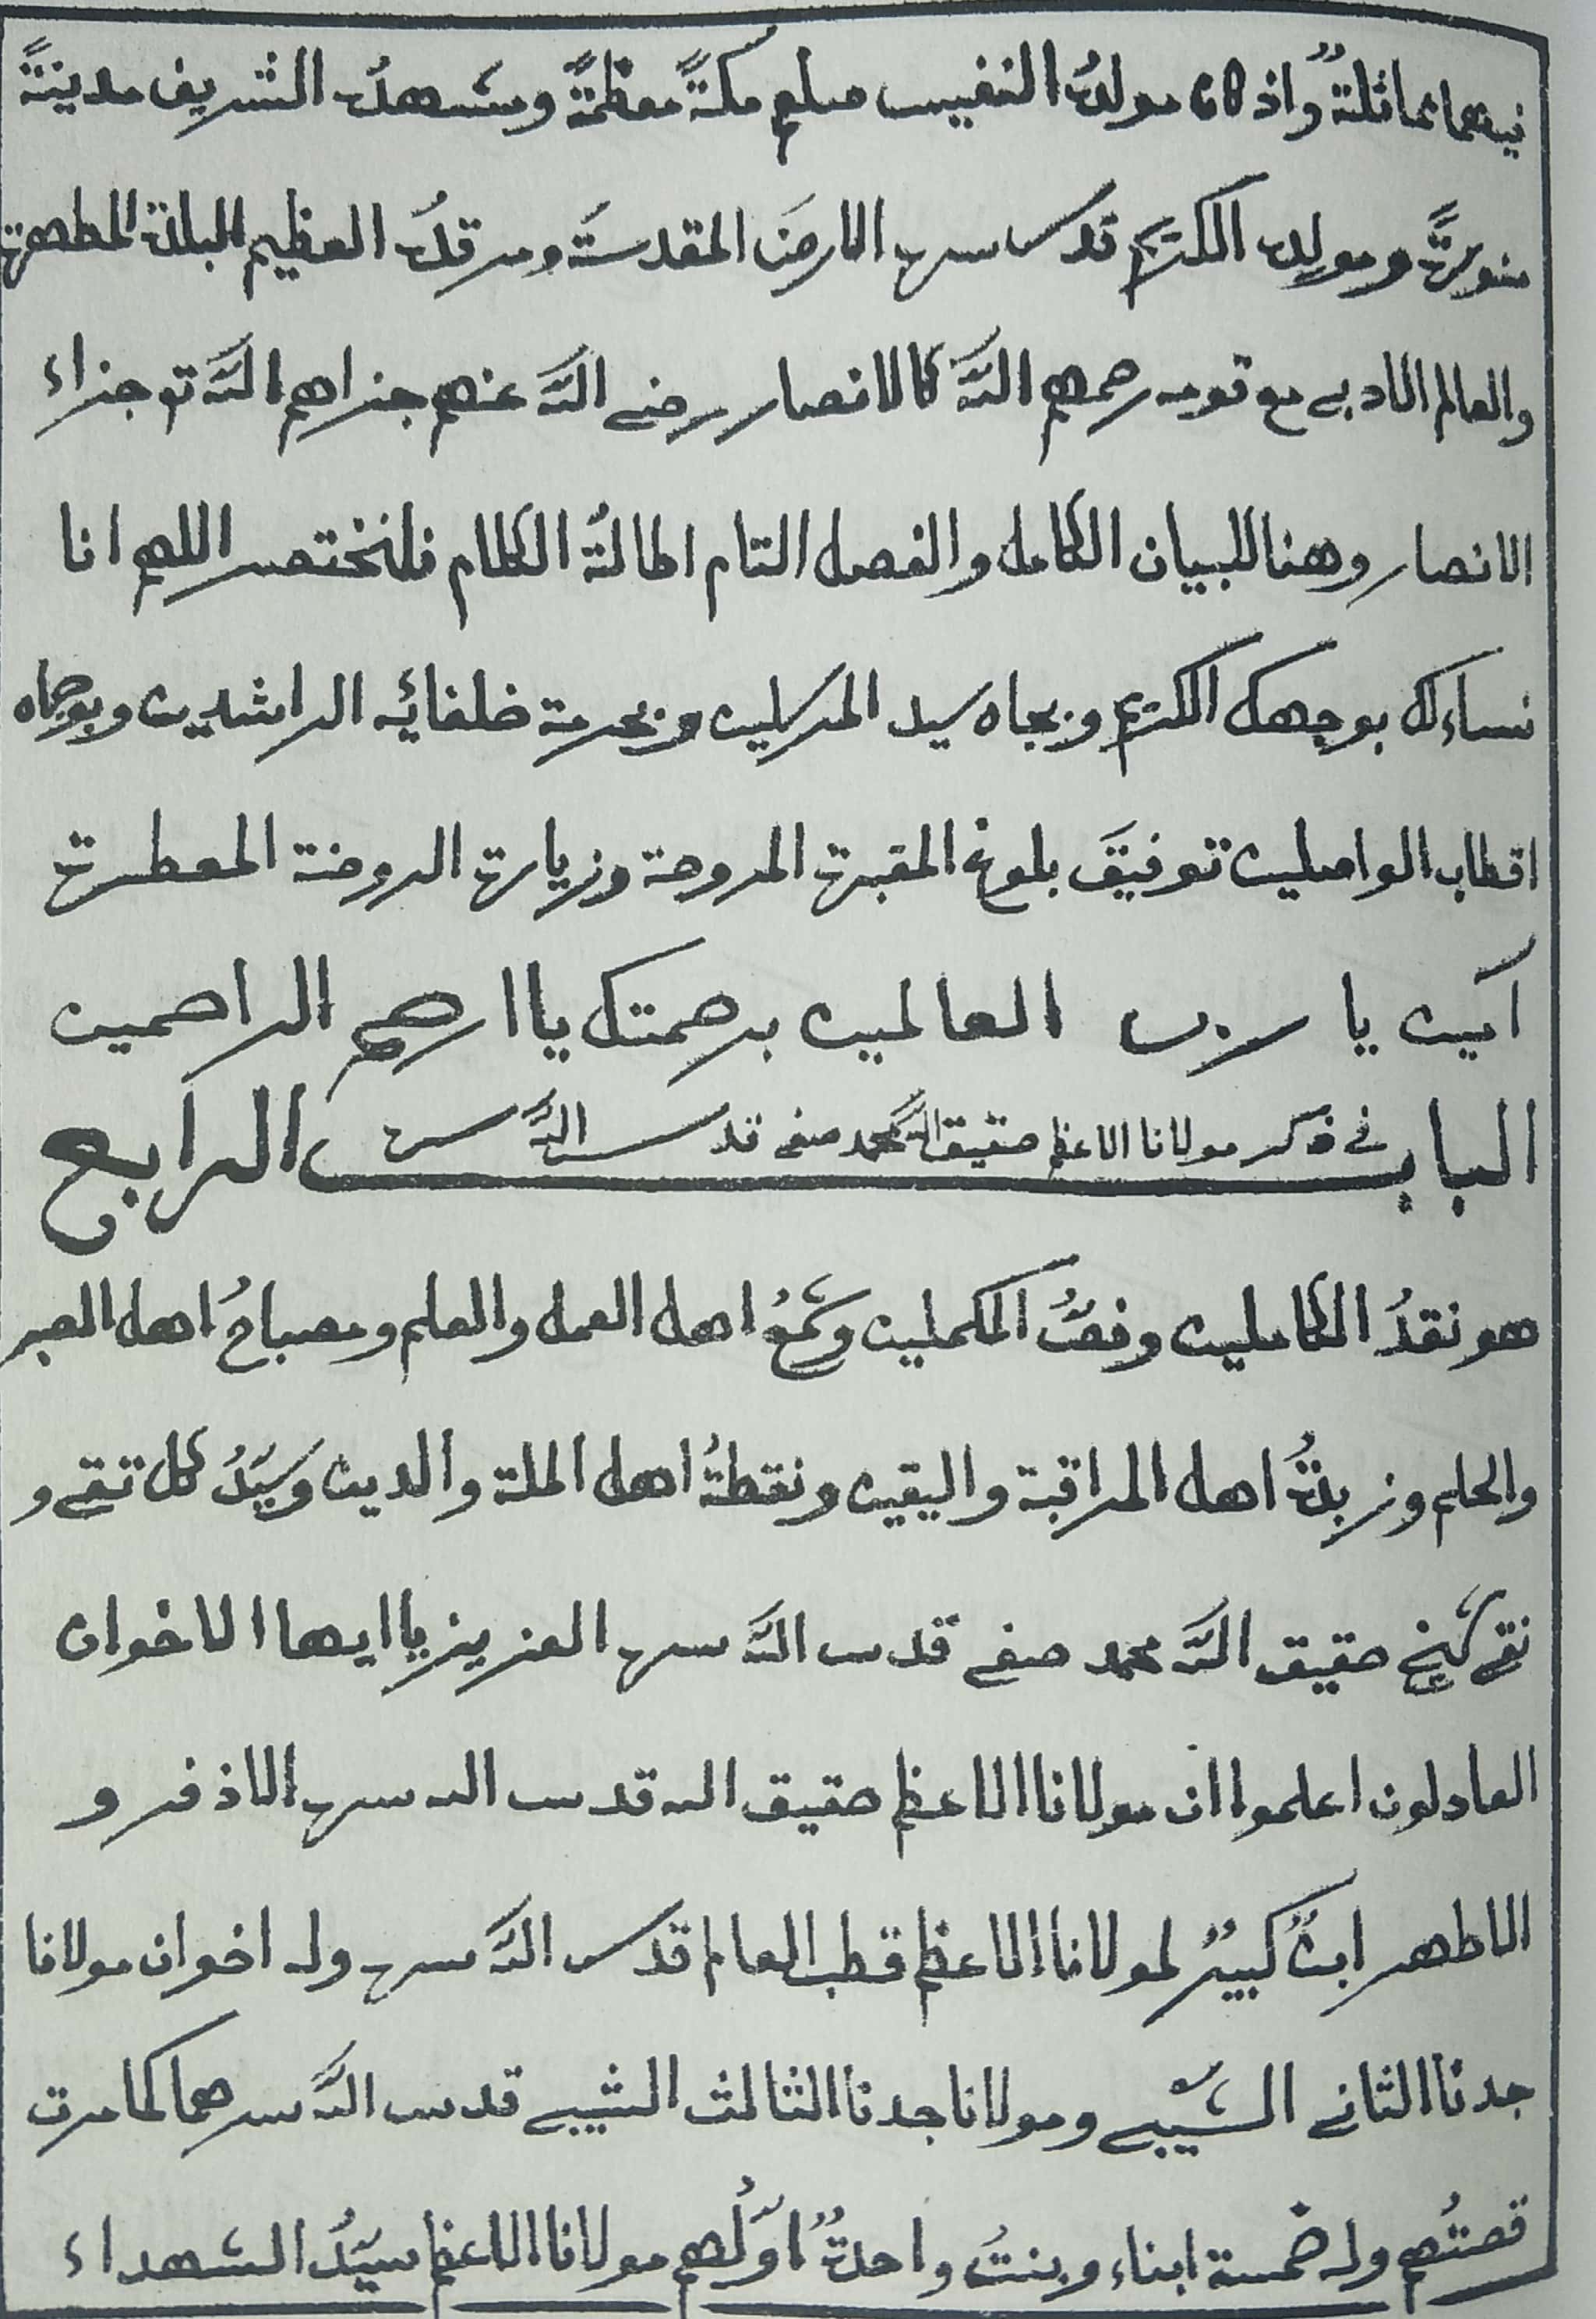 فيهما مماثلةٌ واذ كان مولدُه النفيس صلعم مكةً معظمةً ومشهدُه الشريف مدينتةً
منورةً ومولده الكريم قدس سره الارضَ المقدسةَ ومرقدُه العظيم البلدة المطهرة
والعالم الادبى مع قومه رحمهم اللّه كالانصار رضى اللّه عنهم جزاهم اللّه تع جزاء
الانصار وهنا للبيان الكامل والفصل التام اطالةُ الكلام فلنختصر اللهم انا
نساءلك بوجهك الكريم وبجاه سيد المرسلين وبحرمة خلفائه الراشدين وبوجاه
اقطاب الواصلين توفيقَ بلوغ المقبرة المروحة وزيارة الروضة المعطرة
آمين يا رب العالمين برحمتك يا ارحم الراحمين
الباب فى ذكر مولانا الاعظم حقيق اللّه محمد صفى قدس اللّه سره الرابع
هو نقدُ الكاملين وفصُّ المكملين وشمعُ اهل العمل والعلم ومصباحُ اهل الصبر
والحلم وزبدةُ اهل المراقبة واليقين ونقطةُ اهل الملة والدين وسيّدُ كل تقى و
نقى شيخ حقيق اللّه محمد صفى قدس اللّه سره العزيز يا ايها الاخوان
العادلون اعلموا ان مولانا الاعظم حقيق الله قدس الله سره الاذفر و
الاطهر ابنٌ كبيرٌ لمولانا الاعظم قطب العالم قدس اللّه سره وله اخوان مولانا
جدنا الثانى الشيبى ومولانا جدنا الثالث الشيبى قدس اللّه سرهما كما مرت
قصتُهم وله خمسة ابناء وبنتٌ واحدةٌ اوّلُهم مولانا الاعظم سيّدُ الشهداء